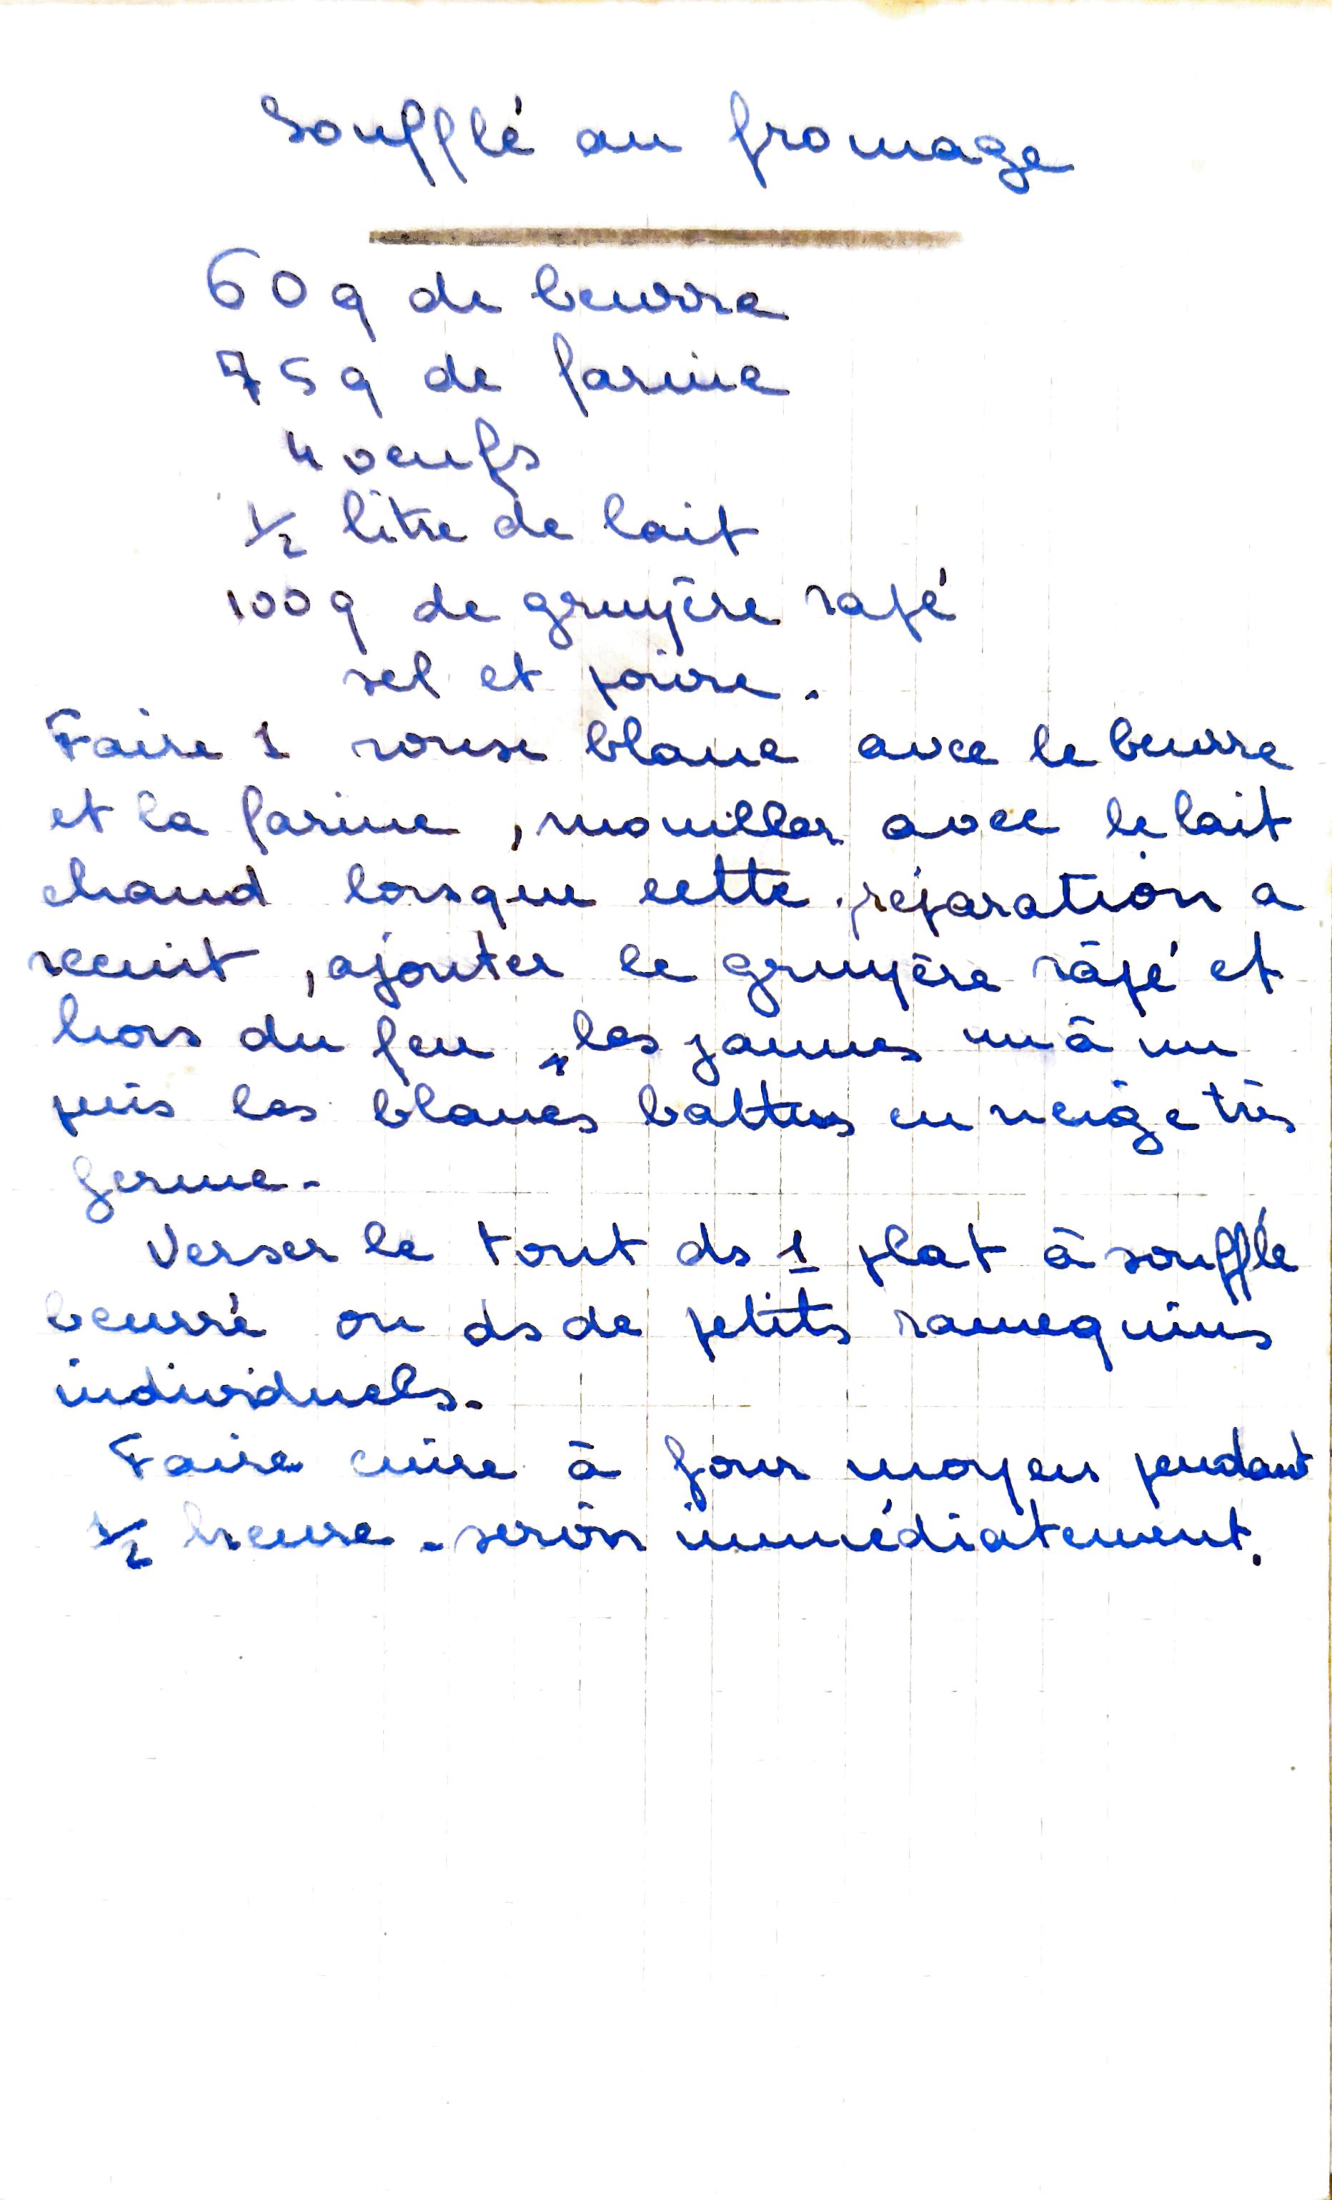 Soufflé au fromage
60 g de beurre
75 g de farine
4 oeufs
1/2 litre de lait
100 g de gruyère rapé
sel et poivre.
Faire 1 roux blanc avec le beurre
et la farine, mouiller avec le lait
chaud lorsque cette préparation a
recuit, ajouter le gruyère râpé et
hors du feu, les jaunes un à un
puis les blancs battus en neige très
ferme.
Verser le tout ds 1 plat à soufflé
beurré ou ds de petits ramequins
individuels.
Faire cuire à four moyen pendant
1/2 heure. servir immédiatement.